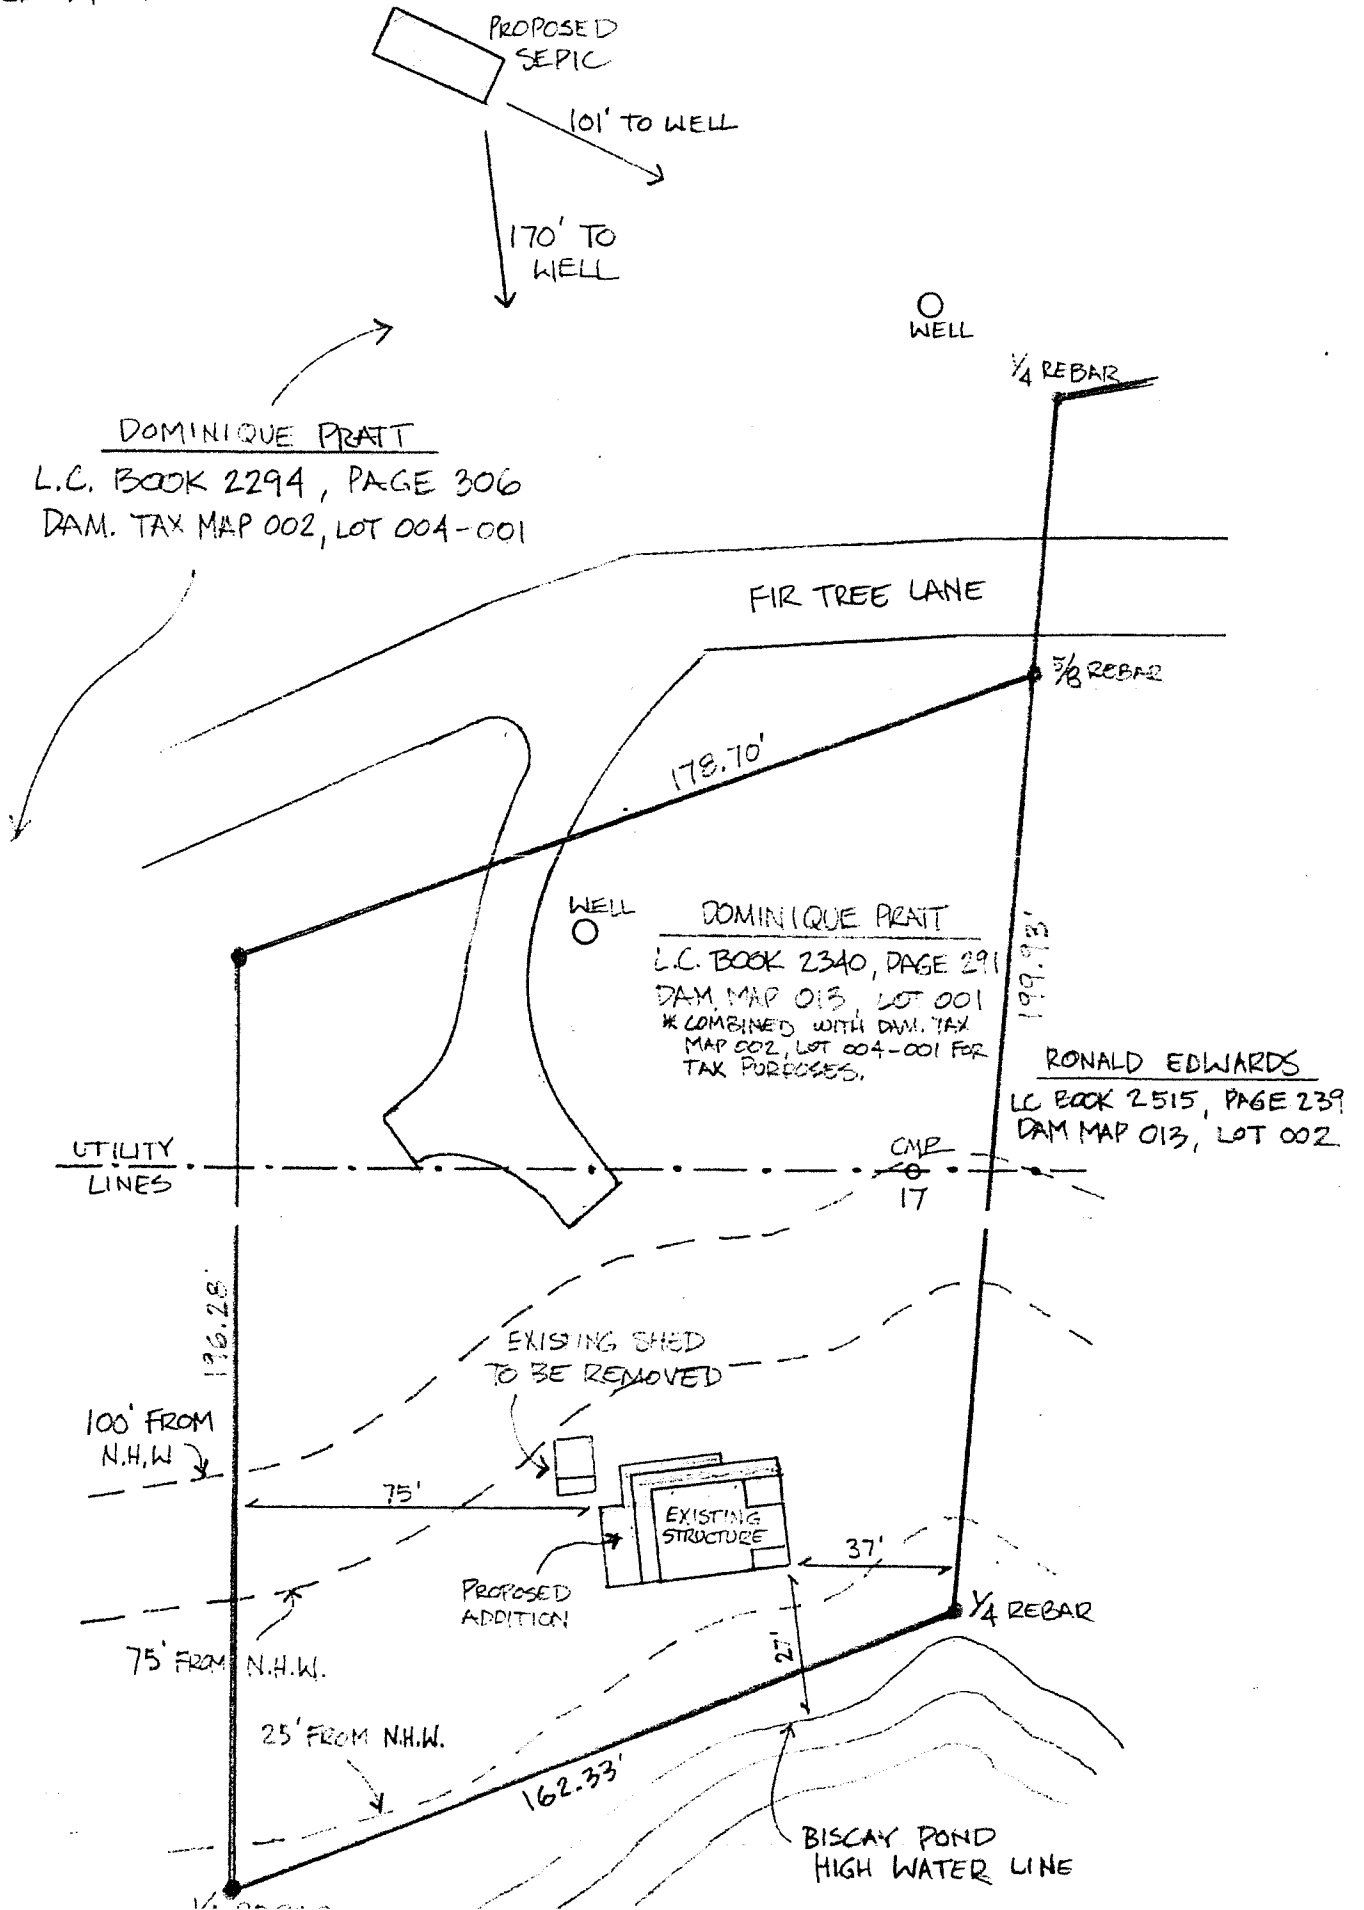 PROPOSED
SEPIC
101' TO WELL
170' TO
WELL
WELL
1/4 REBAR
DOMINIQUE PRATT
L.C. BOOK 2294, PAGE 306
DAM. TAX MAP 002, LOT 004-001
FIR TREE LANE
5/8 REBAR
178.70'
WELL
DOMINIQUE PRATT
L.C. BOOK 2340, PAGE 291
DAM. MAP 013, LOT 001
* COMBINED WITH DAM. TAX
MAP 002, LOT 004-001 FOR
TAX PURPOSES.
199.93'
RONALD EDWARDS
LC BOOK 2515, PAGE 239
DAM MAP 013, LOT 002
UTILITY
LINES
CMP
17
196.28'
EXISTING SHED
TO BE REMOVED
100' FROM
N.H.W
75'
EXISTING
STRUCTURE
37'
PROPOSED
ADDITION
1/4 REBAR
27'
75' FROM N.H.W.
25' FROM N.H.W.
162.33'
BISCAY POND
HIGH WATER LINE